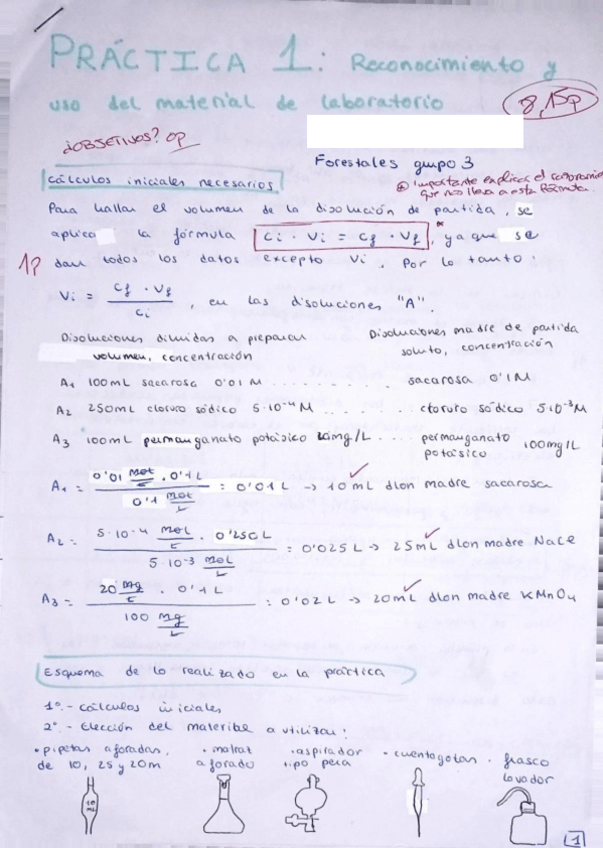 PRÁCTICA 1: Reconocimiento y
uso del material de laboratorio
8,15p
¿OBJETIVOS? 0p
Forestales grupo 3
Cálculos iniciales necesarios
* Importante explicar el razonamie
que nos lleva a esta fórmula.
Para hallar el volumen de la disolución de partida, se
aplica la fórmula Ci · Vi = Cf · Vf,* ya que se
1p
dan todos los datos excepto Vi. Por lo tanto:
Vi = Cf · Vf / Ci, en las disoluciones "A".
Disoluciones diluidas a preparar
volumen, concentración
Disoluciones madre de partida
soluto, concentración
A1 100mL sacarosa 0'01 M .......... sacarosa 0'1M
A2 250mL cloruro sódico 5·10-4 M .... cloruro sódico 5·10-3M
A3 100mL permanganato potásico mg/L .... permanganato potásico 100mg/L
A1 = 0'01 mol/L · 0'1L / 0'1 mol/L = 0'01L → 10mL dlon madre sacarosa
A2 = 5·10-4 mol/L · 0'250L / 5·10-3 mol/L = 0'025L → 25mL dlon madre NaCl
A3 = 20 mg/L · 0'1L / 100 mg/L = 0'02L → 20mL dlon madre KMnO4
Esquema de lo realizado en la práctica
1º.- Cálculos iniciales
2º.- Elección del material a utilizar:
· pipetas aforadas, de 10, 25 y 20m
· matraz aforado
· aspirador tipo pera
· cuentagotas
· frasco lavador
10
1